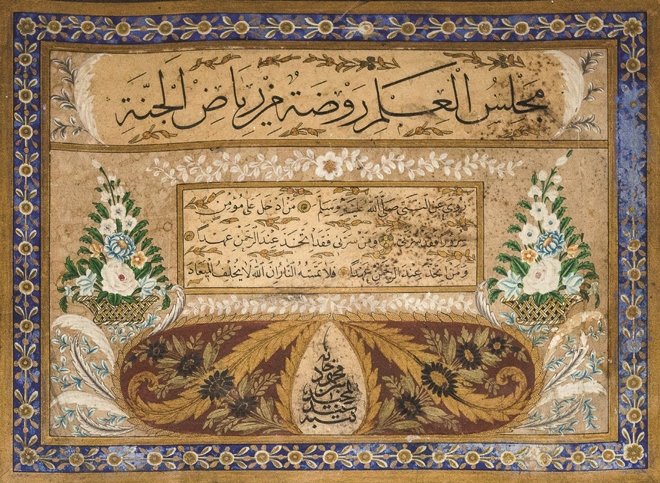 مجلس العلم روضة من رياض الجنة
روي عن النبي صلى الله عليه وسلم من ادخل على مؤمن
سرورا فقد سرني ومن سرني فقد اتخذ عند الرحمن عهدا
ومن يتخذ عند الرحمن عهدا فلا تمسه النار ان الله لا يخلف الميعاد